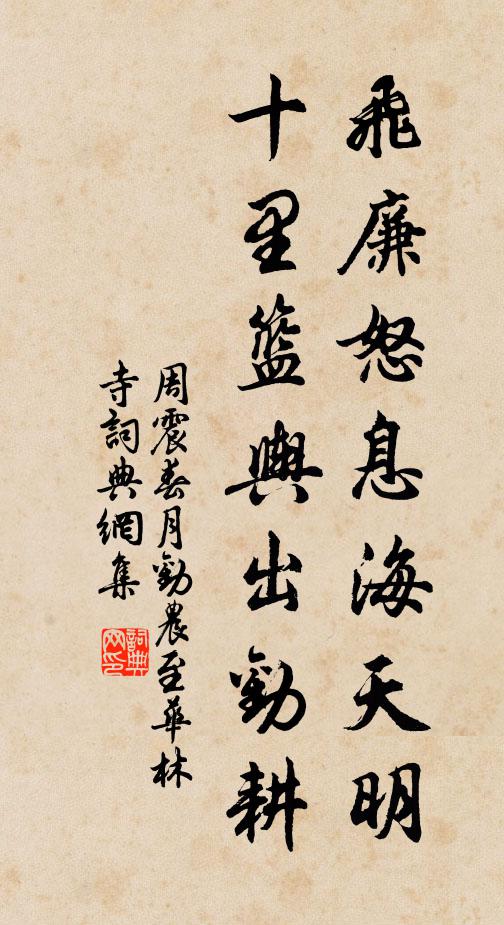 飛廉怒息海天明
十里籃輿出勸耕
周震春月勸農至華林
寺詞典網集
詞典
网印